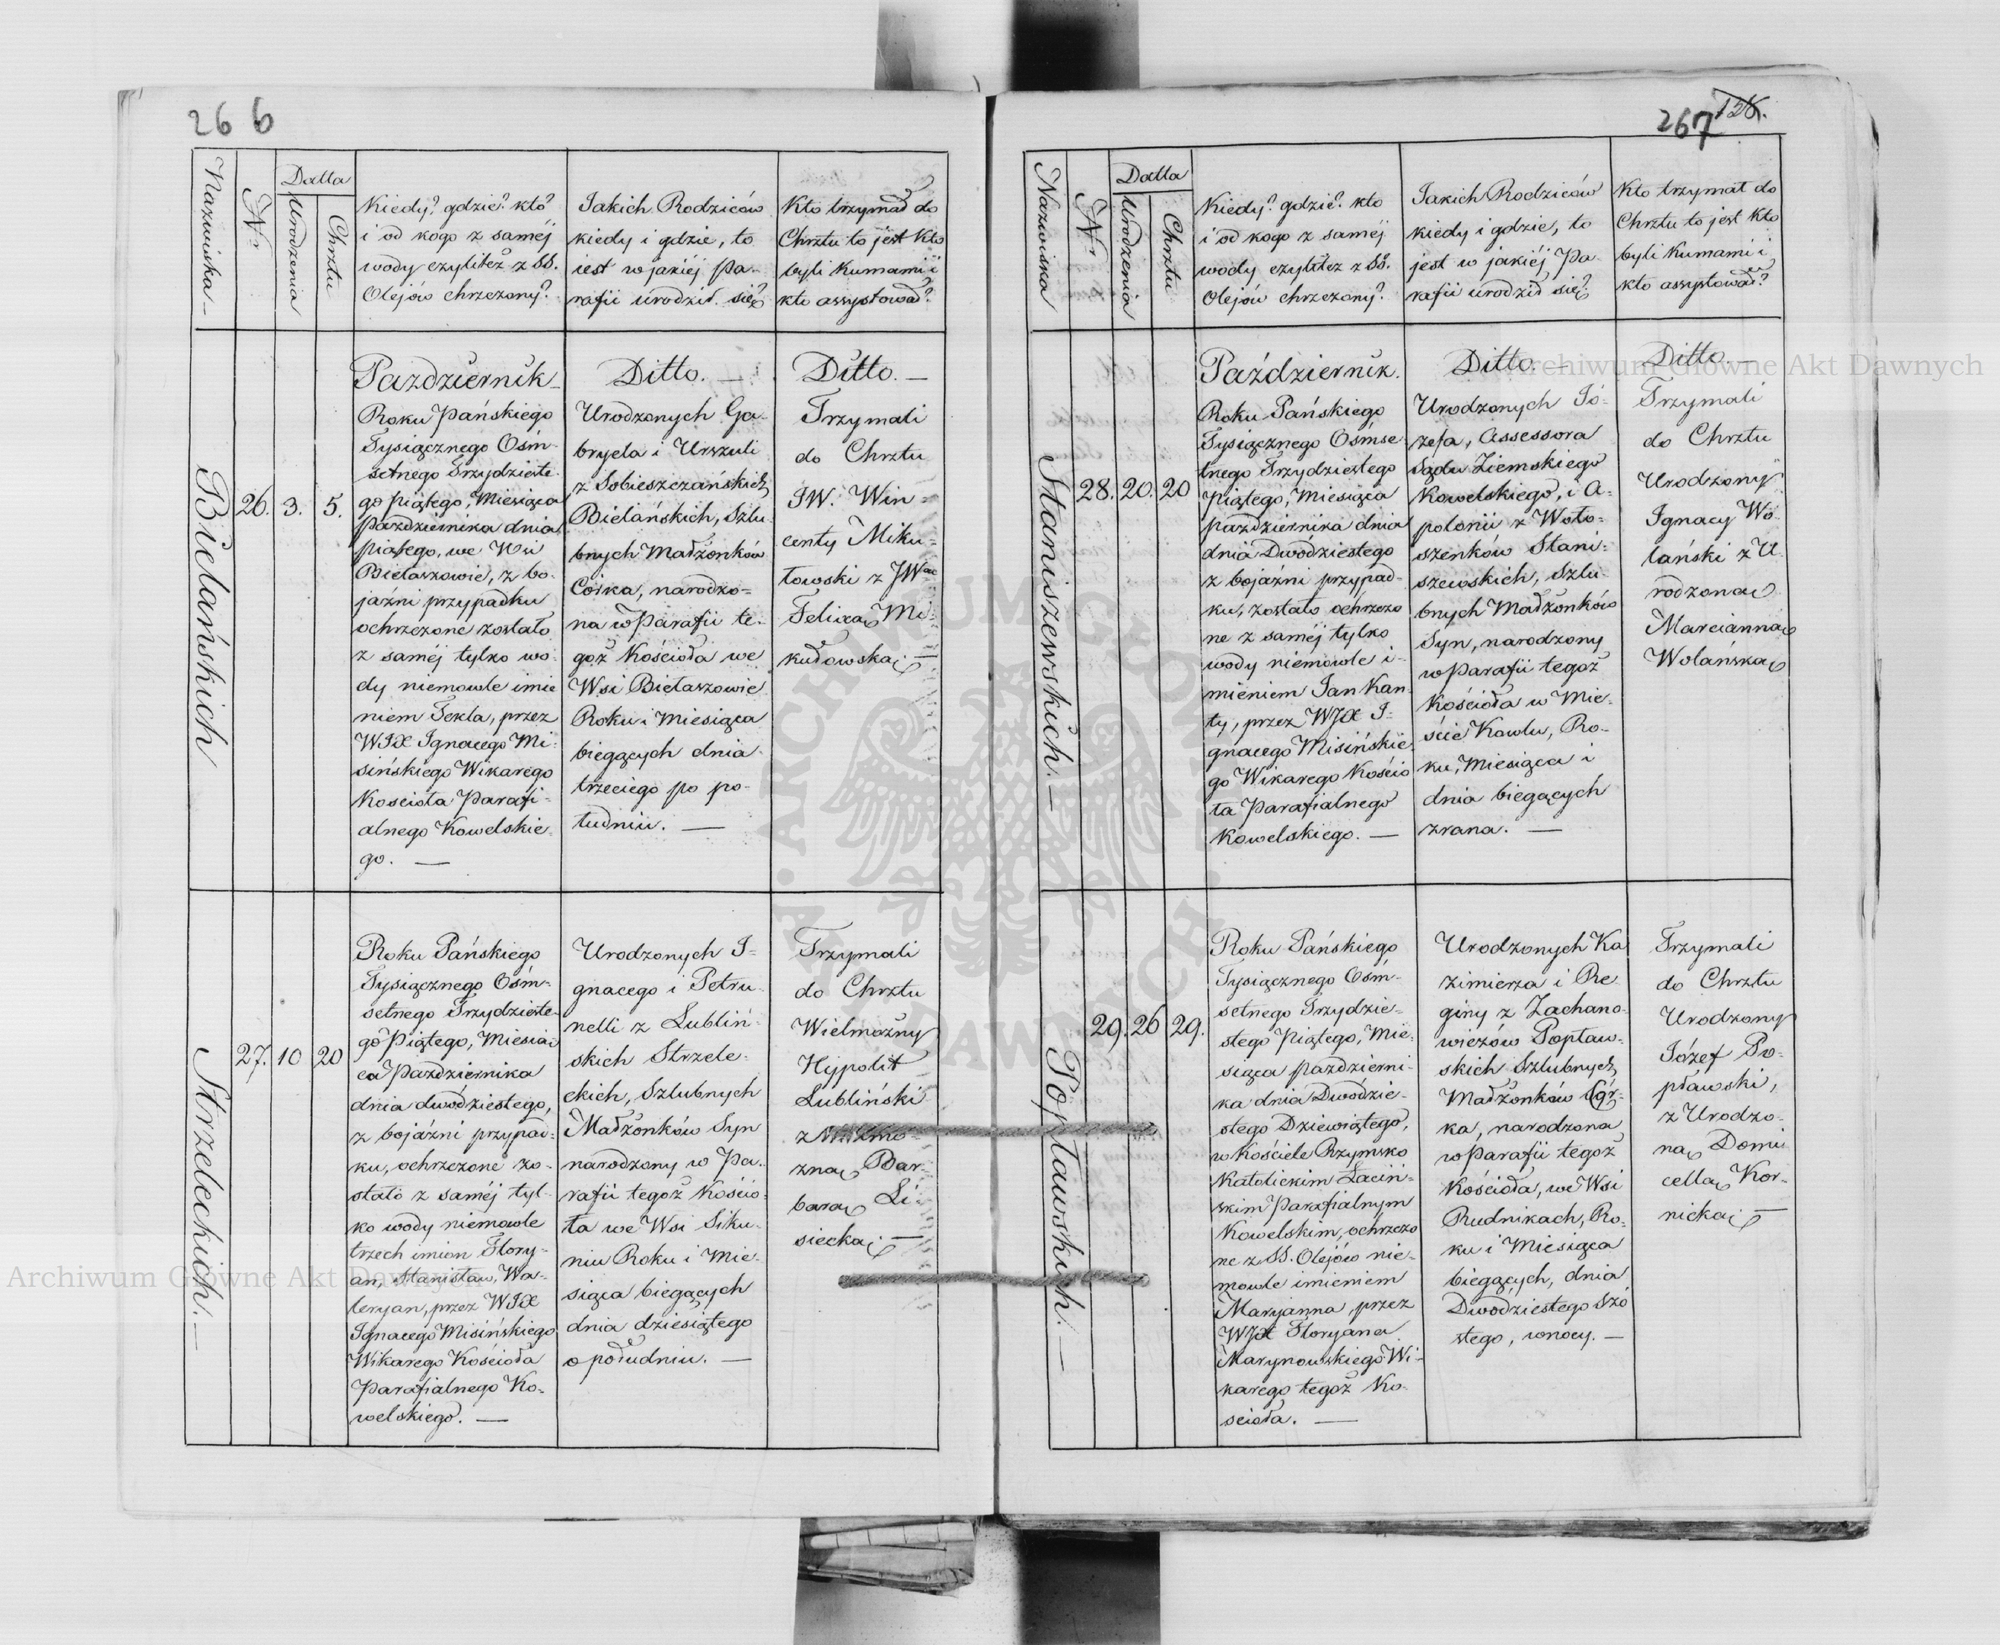 266
Nazwiska
Nr
Datta
Urodzenia
Chrztu
Kiedy? gdzie? kto?
i od kogo z saméj
wody czyliteż z SS.
Olejów chrzczony?
Jakich Rodziców
kiedy i gdzie, to
iest w jakiéj Pa-
rafii urodził się?
Kto trzymał do
Chrztu to jest kto
byli Kumami i
kto assystował?
Bielańskich
26.
3.
5.
Pazdziernik
Roku Pańskiego
Tysiącznego Ośm-
setnego Trzydzieste
go Piątego, Miesiąca
Pazdziernika dnia
piątego, we Wsi
Bielaszowie, z bo-
jaźni przypadku
ochrzczone zostało
z saméj tylko wo-
dy niemowle imie
niem Tekla, przez
WJX Ignacego Mi-
sińskiego Wikarego
Kosciola Parafi-
alnego Kowelskie-
go. —
Ditto. —
Urodzonych Ga-
bryela i Urszuli
z Sobieszczańskich
Bielańskich, Szlu-
bnych Małżonków
Córka, narodzo-
na w Parafii te-
goż Kościoła we
Wsi Bielaszowie
Roku i Miesiąca
bieżących dnia
trzeciego po po-
ludniu. —
Ditto. —
Trzymali
do Chrztu
JW. Win-
centy Miku-
łowski z JWną
Felixą Mi-
kułowską; —
Strzeleckich. —
27.
10
20
Roku Pańskiego
Tysiącznego Ośm-
setnego Trzydzieste-
go Piątego, Miesią-
ca Pazdziernika
dnia dwódziestego,
z bojaźni przypad-
ku, ochrzczone zo-
stało z saméj tyl-
ko wody niemowle
trzech imion Flory-
an, Stanisław, Wa-
leryan, przez WJX
Ignacego Misińskiego
Wikarego Kościoła
Parafialnego Ko-
welskiego. —
Urodzonych I-
gnacego i Petru-
nelli z Lubliń-
skich Strzele-
ckich, Szlubnych
Małżonków Syn
narodzony w Pa-
rafii tegoż Kościo-
ła we Wsi Siku-
niu Roku i Mie-
siąca bieżących
dnia dziesiątego
o południu. —
Trzymali
do Chrztu
Wielmożny
Hyppolit
Lubliński
z Wielmo-
żną Bar-
barą Li-
siecką; —
267
128.
Nazwiska
Nr
Datta
Urodzenia
Chrztu
Kiedy? gdzie? kto
i od kogo z saméj
wody czyliteż z SS.
Olejów chrzczony?
Jakich Rodziców
kiedy i gdzie, to
jest w jakiéj Pa-
rafii urodził się?
Kto trzymał do
Chrztu to jest kto
byli Kumami i
kto assystował?
Staniszewskich. —
28.
20.
20
Październik.
Roku Pańskiego
Tysiącznego Ośmse
tnego Trzydziestego
Piątego, Miesiąca
Pazdziernika dnia
dnia Dwódziestego
z bojaźni przypad-
ku, zostało ochrzczo
ne z saméj tylko
wody niemowle i-
mieniem Jan Kan-
ty, przez WJX I-
gnacego Misińskie
go Wikarego Kościo
ła Parafialnego
Kowelskiego. —
Ditto. —
Urodzonych Jó-
zefa, Assessora
Sądu Ziemskiego
Kowelskiego, i A-
polonii z Woło-
szenków Stani-
szewskich, Szlu-
bnych Małżonków
Syn, narodzony
w Parafii tegoż
Kościoła w Mie-
ście Kowlu, Ro-
ku, Miesiąca i
dnia bieżących
zrana. —
Ditto. —
Trzymali
do Chrztu
Urodzony
Ignacy Wo-
lański z U-
rodzoną
Marcianną
Wolańską
Popławskich. —
29.
26
29.
Roku Pańskiego
Tysiącznego Ośm-
setnego Trzydzie-
stego Piątego, Mie-
siąca Pazdzierni-
ka dnia Dwódzie-
stego Dziewiątego,
w Kościele Rzymsko
Katolickim Łaciń-
skim Parafialnym
Kowelskim, ochrzczo
ne z SS. Olejów nie-
mowle imieniem
Maryanna, przez
WJX Floryana
Marynowskiego Wi-
karego tegoż Ko-
scioła. —
Urodzonych Ka
zimierza i Re-
giny z Zachano-
wiczów Popław-
skich Szlubnych
Małżonków Cór-
ka, narodzona
w Parafii tegoż
Kościoła, we Wsi
Rudnikach, Ro-
ku i Miesiąca
bieżących, dnia
Dwódziestego Szó
stego, w nocy. —
Trzymali
do Chrztu
Urodzony
Józef Po-
pławski,
z Urodzo-
ną Domi
cellą Kor-
nicką; —
Archiwum Główne Akt Dawnych
Archiwum Główne Akt Dawnych
A. ARCHIWUM GŁÓWNE AKT DAWNYCH.